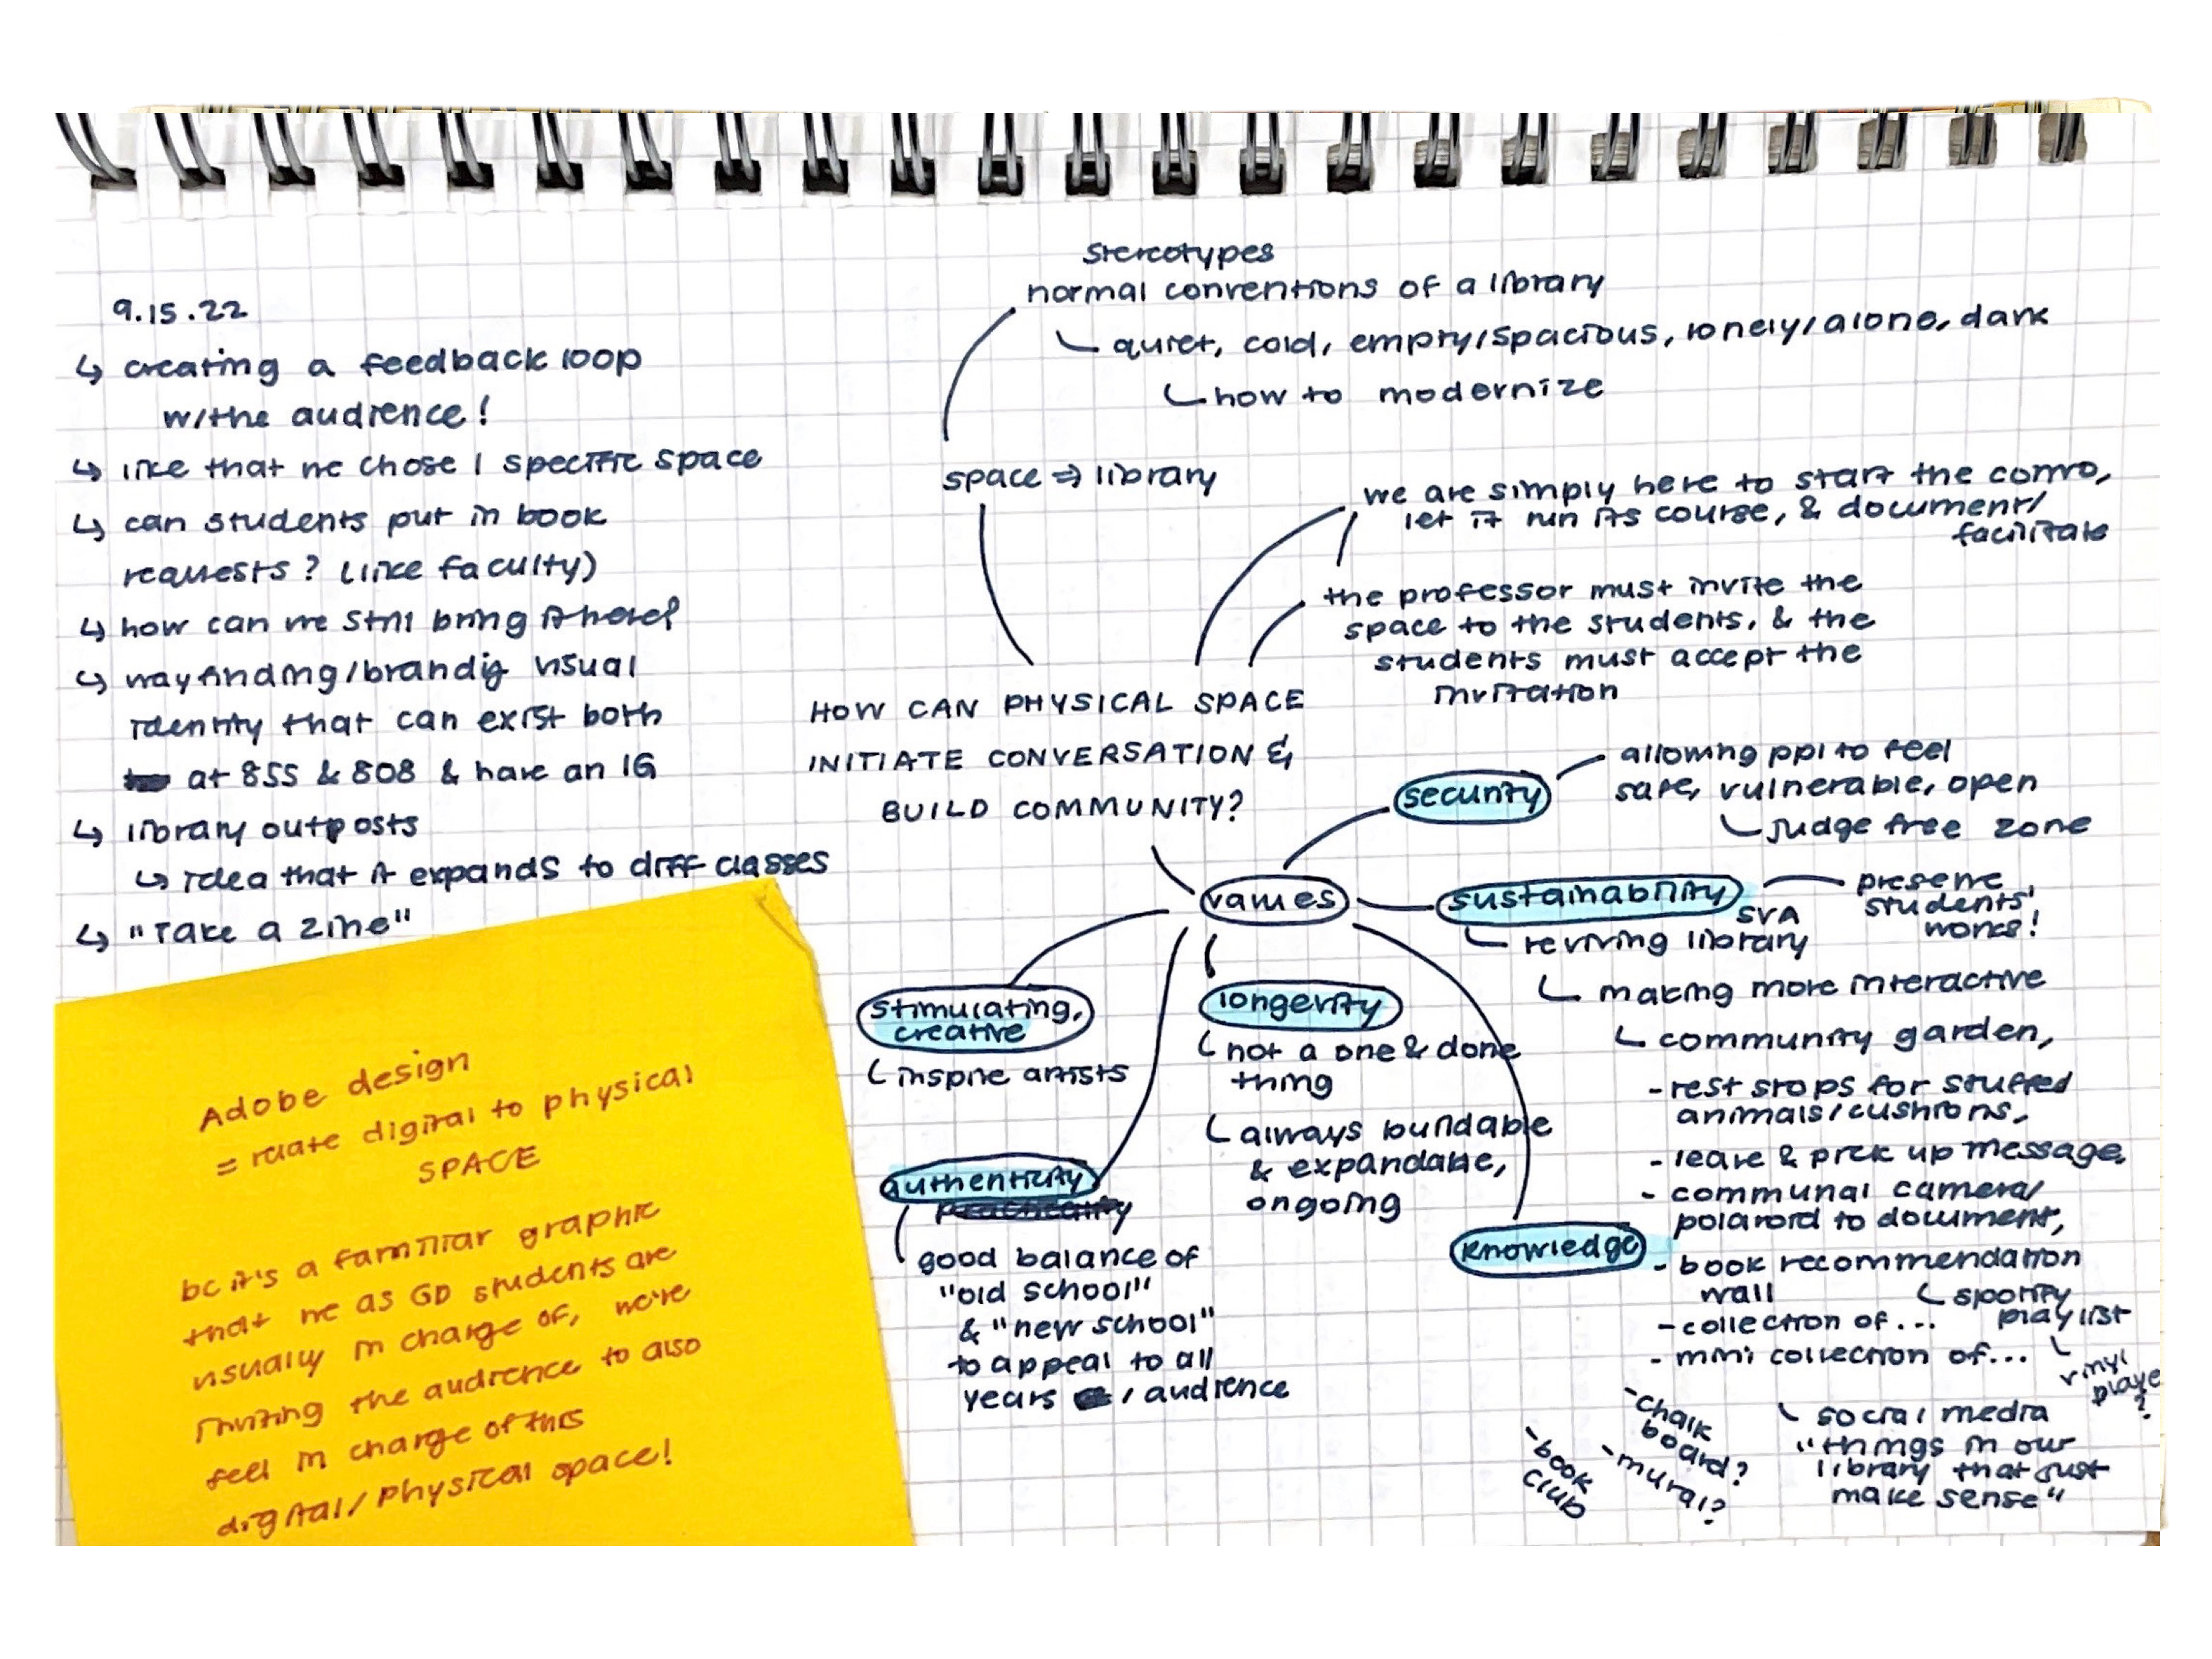 9.15.22
↳ creating a feedback loop
w/the audience!
↳ like that we chose 1 specific space
↳ can students put in book
requests? (like faculty)
↳ how can we still bring it here?
↳ wayfinding/brandig visual
identity that can exist both
at 855 & 808 & have an IG
↳ library outposts
↳ idea that it expands to diff classes
↳ "Take a zine"
Adobe design
= relate digital to physical
SPACE
bc it's a familiar graphic
that we as GD students are
usually in charge of, we're
inviting the audience to also
feel in charge of this
digital/physical space!
Stereotypes
normal conventions of a library
quiet, cold, empty/spacious, lonely/alone, dark
how to modernize
space ⇒ library
we are simply here to start the convo,
let it run its course, & document/
facilitate
the professor must invite the
space to the students, & the
students must accept the
invitation
HOW CAN PHYSICAL SPACE
INITIATE CONVERSATION &
BUILD COMMUNITY?
values
security
allowing ppl to feel
safe, vulnerable, open
judge free zone
sustainability
preserve
students'
works!
SVA
reviving library
making more interactive
community garden,
- rest stops for stuffed
animals/cushions,
- leave & pick up message,
- communal camera/
polaroid to document,
- book recommendation
wall
spotify
playlist
vinyl
playe
?
- collection of...
- mini collection of...
social media
"things in our
library that just
make sense"
- chalk
board?
- mural?
- book
club
stimulating,
creative
inspire artists
longevity
not a one & done
thing
always buildable
& expandable,
ongoing
authenticity
good balance of
"old school"
& "new school"
to appeal to all
years / audience
knowledge